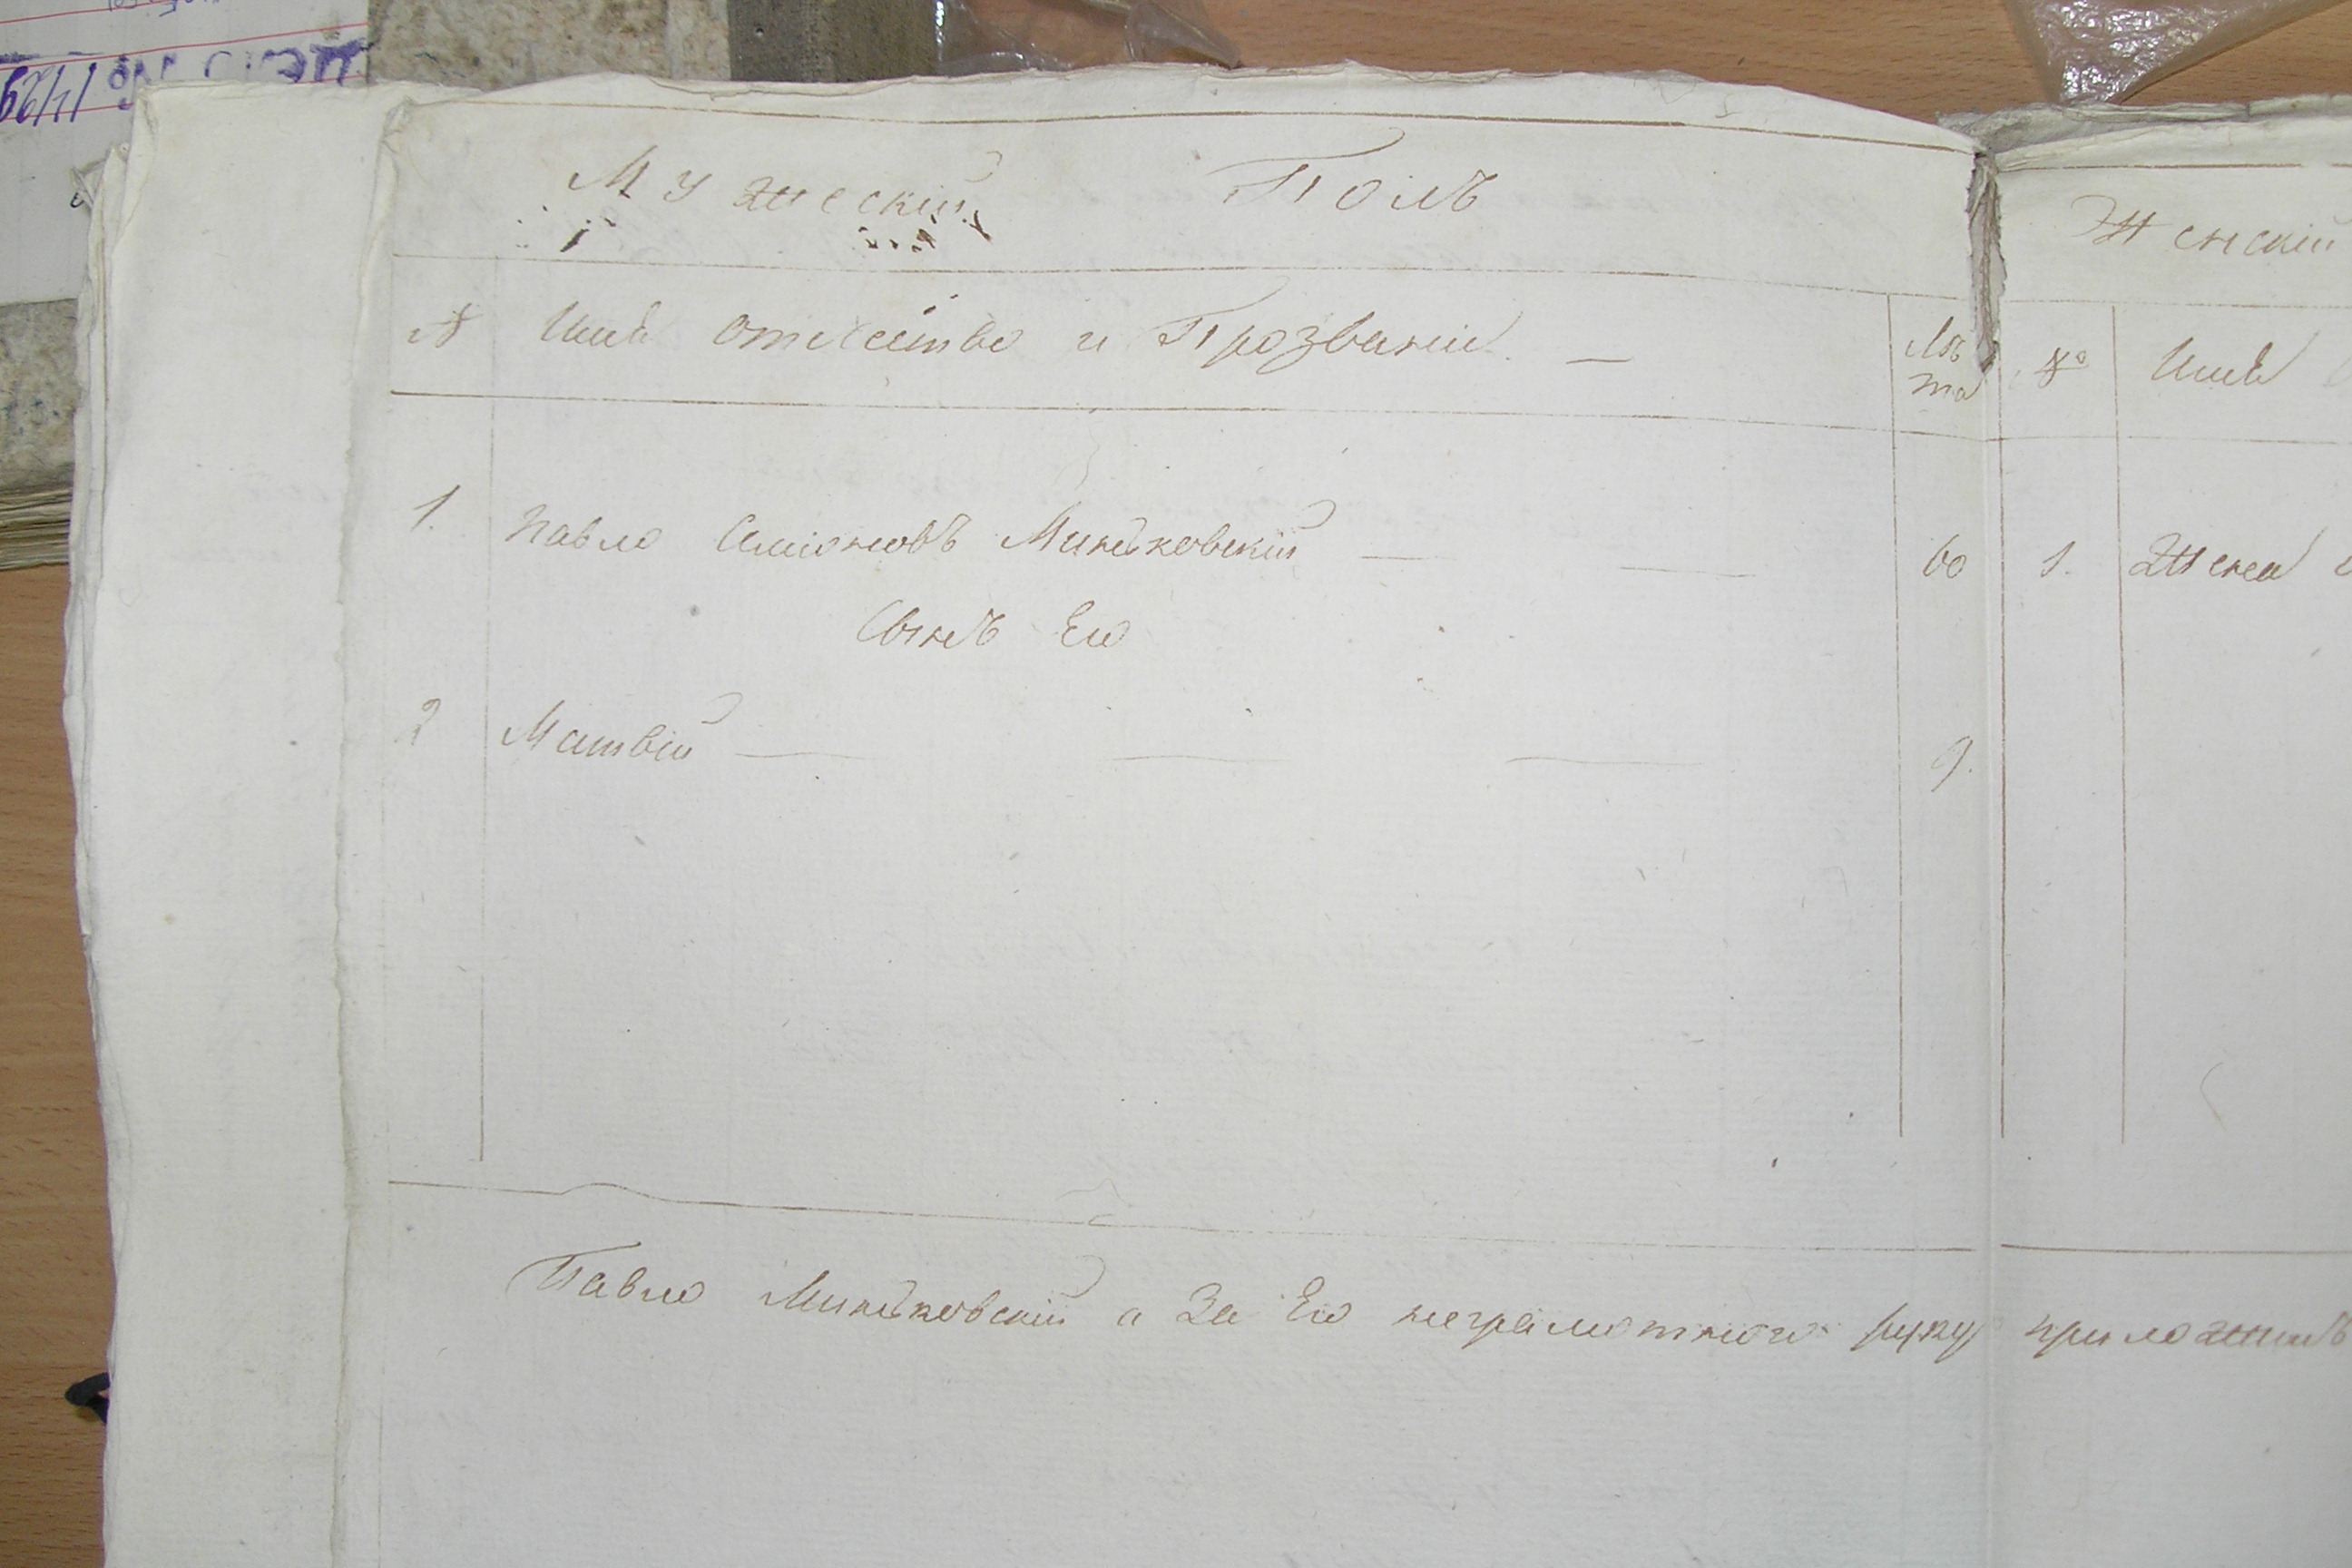 Дело № 1429
Мужеский Полъ
№ Имя отчество и Прозвание. —
Лѣ
та
1. Павло Симіоновъ Миньковскій — — 60
Сынъ Его
2 Матвій — — — 9.
Женскій
№ Имя
1. Жена
Павло Миньковскій а За Его неграмотного руку приложилъ